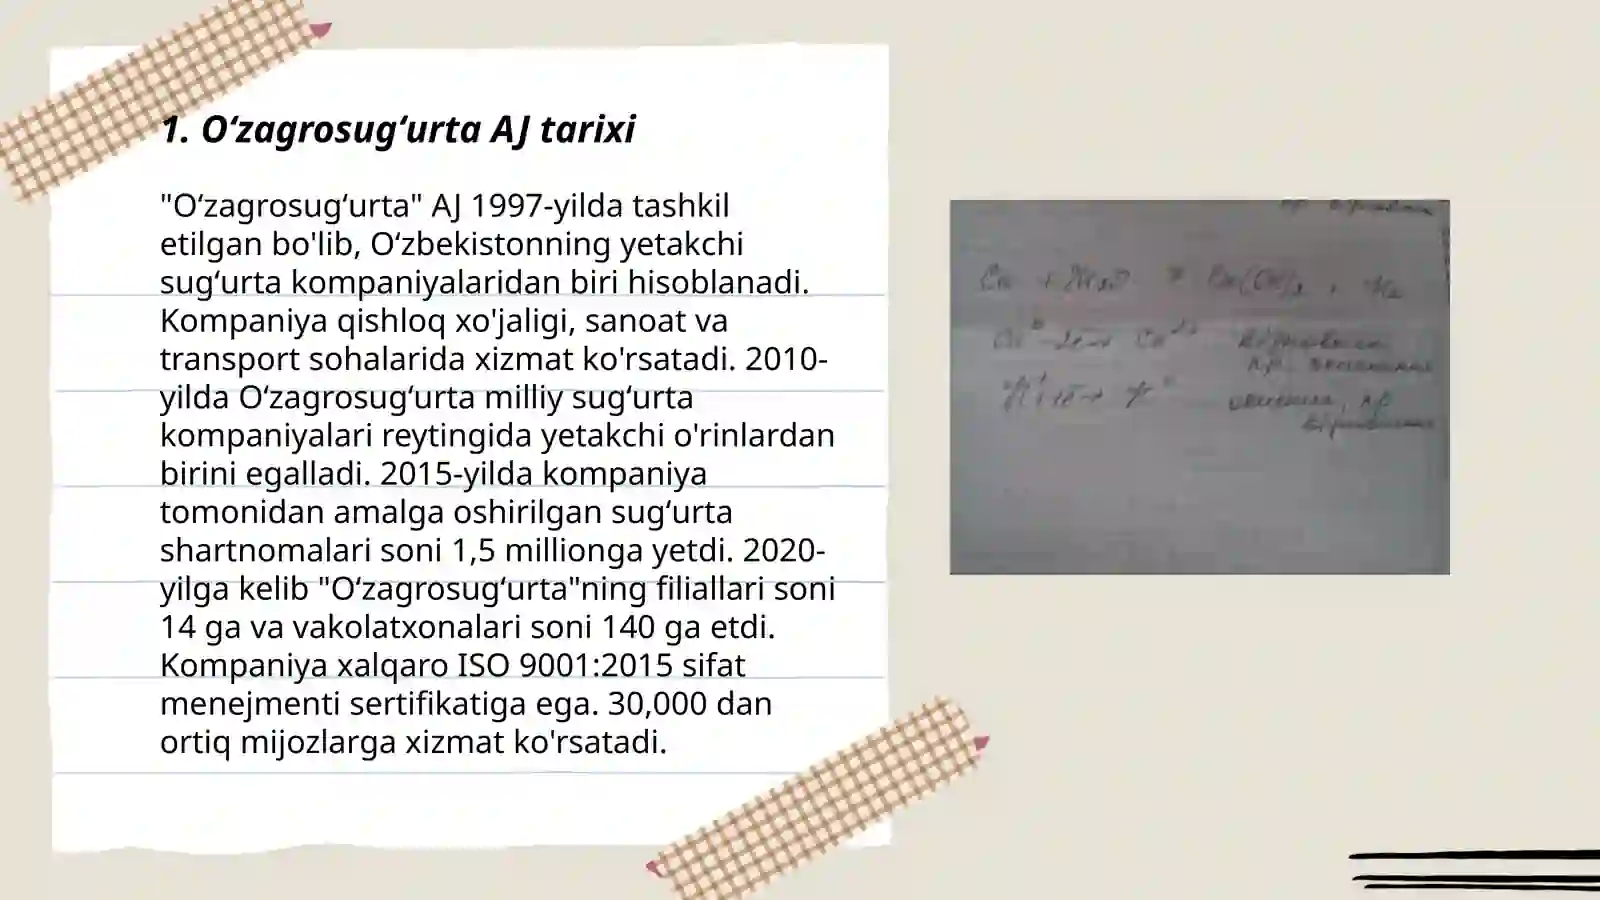 1. Oʻzagrosugʻurta AJ tarixi
"Oʻzagrosugʻurta" AJ 1997-yilda tashkil
etilgan bo'lib, Oʻzbekistonning yetakchi
sugʻurta kompaniyalaridan biri hisoblanadi.
Kompaniya qishloq xo'jaligi, sanoat va
transport sohalarida xizmat ko'rsatadi. 2010-
yilda Oʻzagrosugʻurta milliy sugʻurta
kompaniyalari reytingida yetakchi o'rinlardan
birini egalladi. 2015-yilda kompaniya
tomonidan amalga oshirilgan sugʻurta
shartnomalari soni 1,5 millionga yetdi. 2020-
yilga kelib "Oʻzagrosugʻurta"ning filiallari soni
14 ga va vakolatxonalari soni 140 ga etdi.
Kompaniya xalqaro ISO 9001:2015 sifat
menejmenti sertifikatiga ega. 30,000 dan
ortiq mijozlarga xizmat ko'rsatadi.